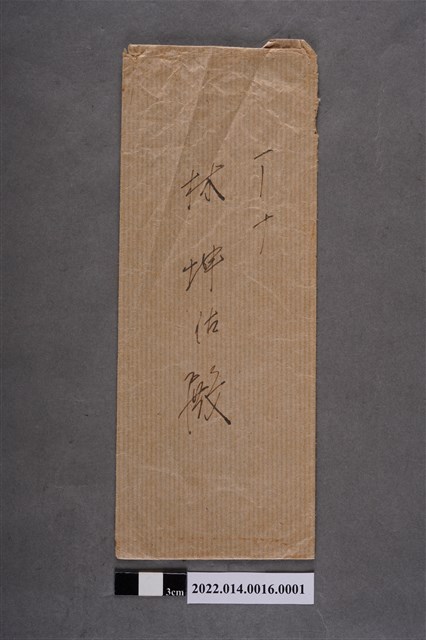 下十
林坤沽殿
3cm
2022.014.0016.0001